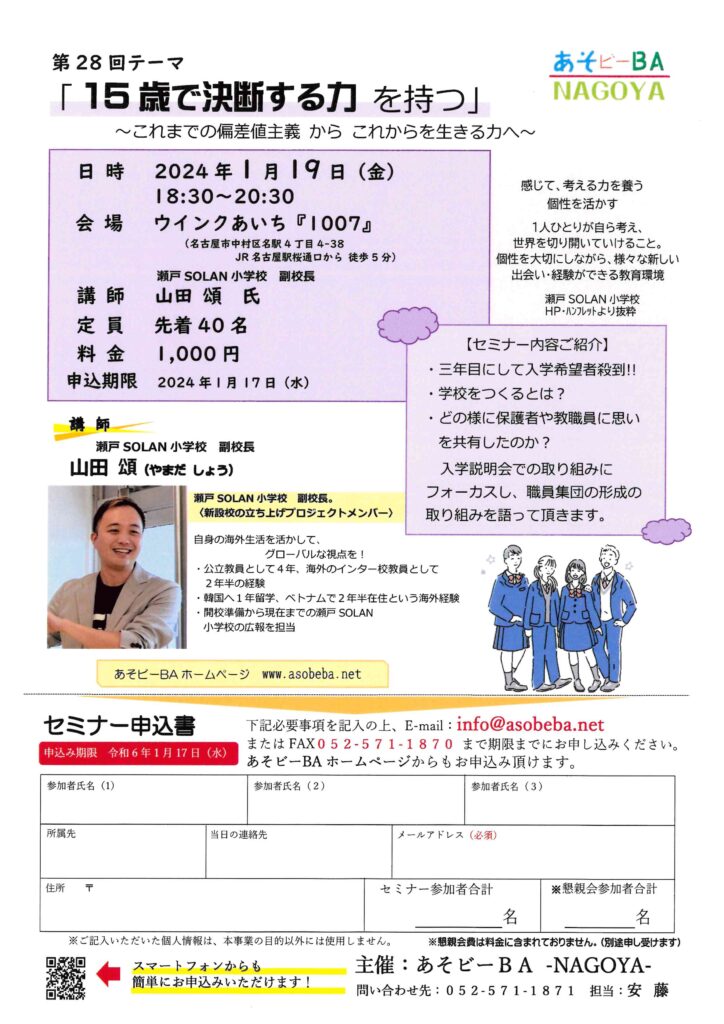 第28回テーマ
「15歳で決断する力 を持つ」
～これまでの偏差値主義 から これからを生きる力へ～
あそビーBA
NAGOYA
日 時 2024年1月19日（金）
18:30～20:30
会 場 ウインクあいち『1007』
（名古屋市中村区名駅4丁目4-38
JR名古屋駅桜通口から 徒歩5分）
瀬戸SOLAN小学校 副校長
講 師 山田 頌 氏
定 員 先着40名
料 金 1,000円
申込期限 2024年1月17日（水）
感じて、考える力を養う
個性を活かす
1人ひとりが自ら考え、
世界を切り開いていけること。
個性を大切にしながら、様々な新しい
出会い・経験ができる教育環境
瀬戸SOLAN小学校
HP・パンフレットより抜粋
【セミナー内容ご紹介】
・三年目にして入学希望者殺到!!
・学校をつくるとは？
・どの様に保護者や教職員に思い
を共有したのか？
入学説明会での取り組みに
フォーカスし、職員集団の形成の
取り組みを語って頂きます。
講 師
瀬戸SOLAN小学校 副校長
山田 頌（やまだ しょう）
瀬戸SOLAN小学校 副校長。
〈新設校の立ち上げプロジェクトメンバー〉
自身の海外生活を活かして、
グローバルな視点を！
・公立教員として4年、海外のインター校教員として
2年半の経験
・韓国へ1年留学、ベトナムで2年半在住という海外経験
・開校準備から現在までの瀬戸SOLAN
小学校の広報を担当
あそビーBAホームページ www.asobeba.net
セミナー申込書
申込み期限 令和6年1月17日（水）
下記必要事項を記入の上、E-mail：info@asobeba.net
またはFAX052-571-1870 まで期限までにお申し込みください。
あそビーBAホームページからもお申込み頂けます。
参加者氏名（1） 参加者氏名（2） 参加者氏名（3）
所属先 当日の連絡先 メールアドレス（必須）
住所 〒 セミナー参加者合計 ※懇親会参加者合計
名 名
※ご記入いただいた個人情報は、本事業の目的以外には使用しません。 ※懇親会費は料金に含まれておりません。（別途申し受けます）
スマートフォンからも
簡単にお申込みいただけます！
主催：あそビーBA -NAGOYA-
問い合わせ先：052-571-1871 担当：安 藤